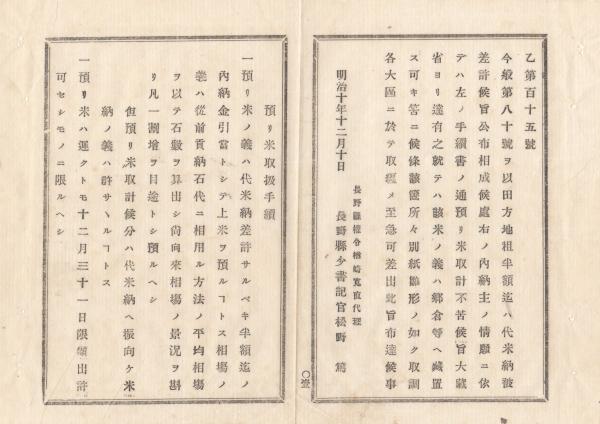 乙第百十五號
今般第八十號ヲ以田方地租半額迄ハ代米納被
差許候旨公布相成候處右ノ內納主ノ情願ニ依
テハ左ノ手續書ノ通預リ米取計不苦候旨大藏
省ヨリ達有之就テハ該米ノ義ハ鄕倉等ヘ藏置
ス可キ筈ニ候條該箇所々別紙雛形ノ如ク取調
各大區ニ於テ取纒メ至急可差出此旨布達候事
明治十年十二月十日
長野縣權令楢崎寬直代理
長野縣少書記官松野 篤
〇壹
預リ米取扱手續
一預リ米ノ義ハ代米納差許サルベキ半額迄ノ
內納金引當トシテ上米ヲ預ルヿトス相場ノ
義ハ從前貢納石代ニ相用ル方法ノ平均相場
ヲ以テ石數ヲ算出シ尙向來相場ノ景況ヲ斟
リ凡一割增ヲ目途トシ預ルヘシ
但預リ米取計候分ハ代米納ヘ振向ケ米
納ノ義ハ許サヽルヿトス
一預リ米ハ遲クトモ十二月三十一日限願出許
可セシモノニ限ルヘシ